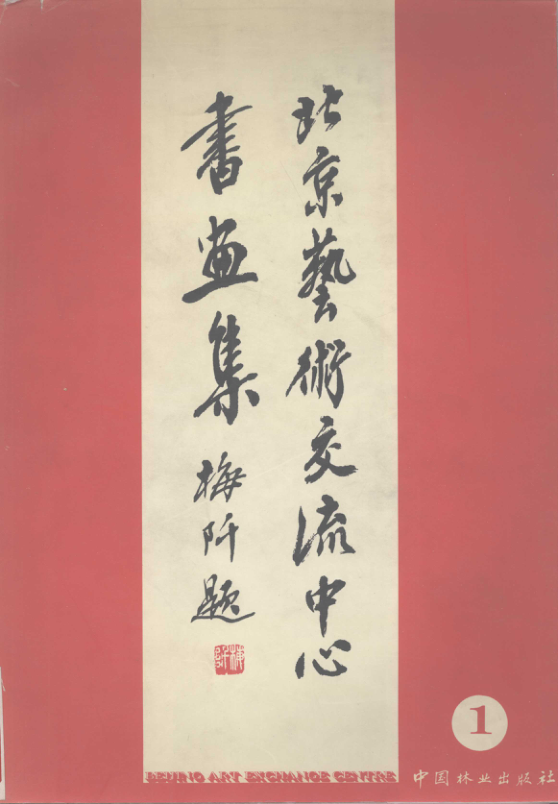 北京藝術交流中心
書画集
梅阡題
梅阡
1
BEIJING ART EXCHANGE CENTRE
中国林业出版社